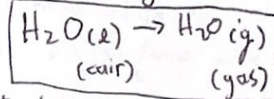 H₂O(l) → H₂O(g)
(cair) (gas)